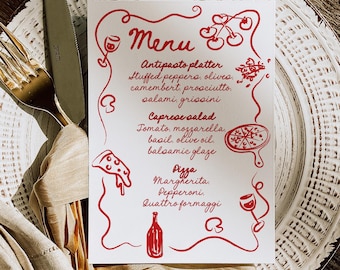 Menu
Antipasto platter
Stuffed peppers, olives,
camembert, prosciutto,
salami, grissini
Caprese salad
Tomato, mozzarella,
basil, olive oil,
balsamic glaze
Pizza
Margherita,
Pepperoni,
Quattro formaggi